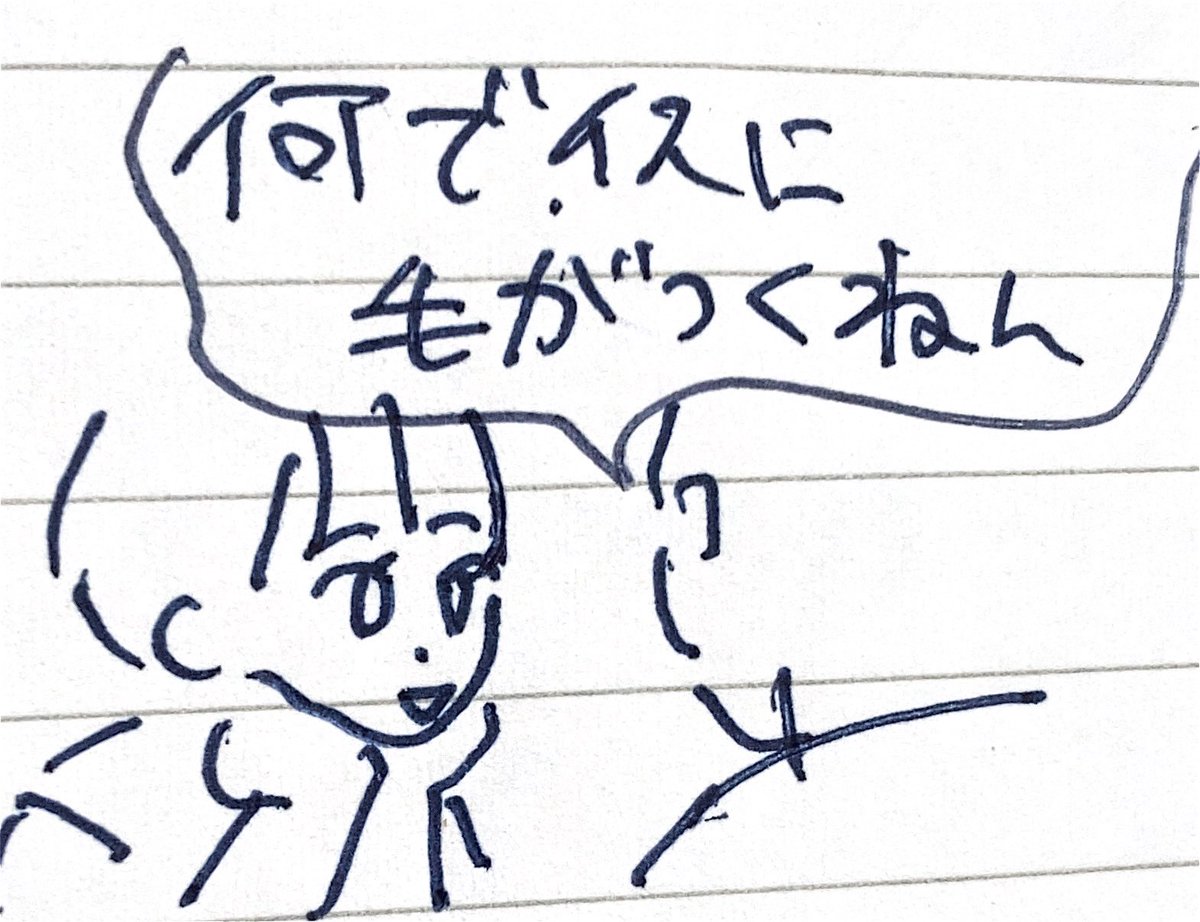 何でイスに
毛がつくねん